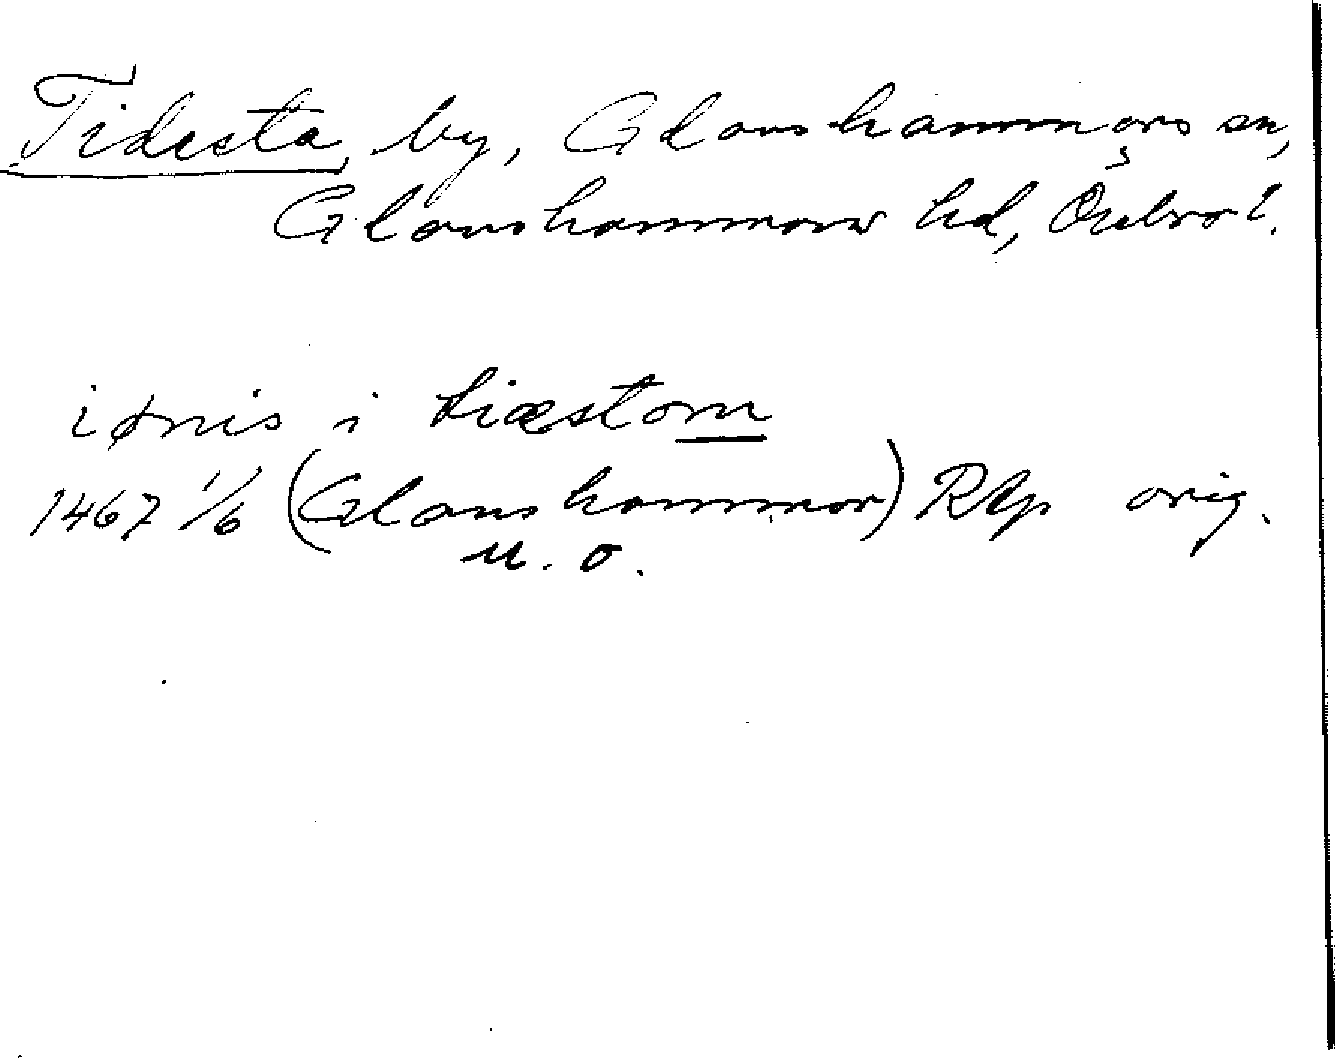 Tidesta, by, Glanshammars sn,
Glanshammars hd, Örebro l.
iønis i tiæstom
1467 1/6 (Glanshammar) RAp orig.
u. o.